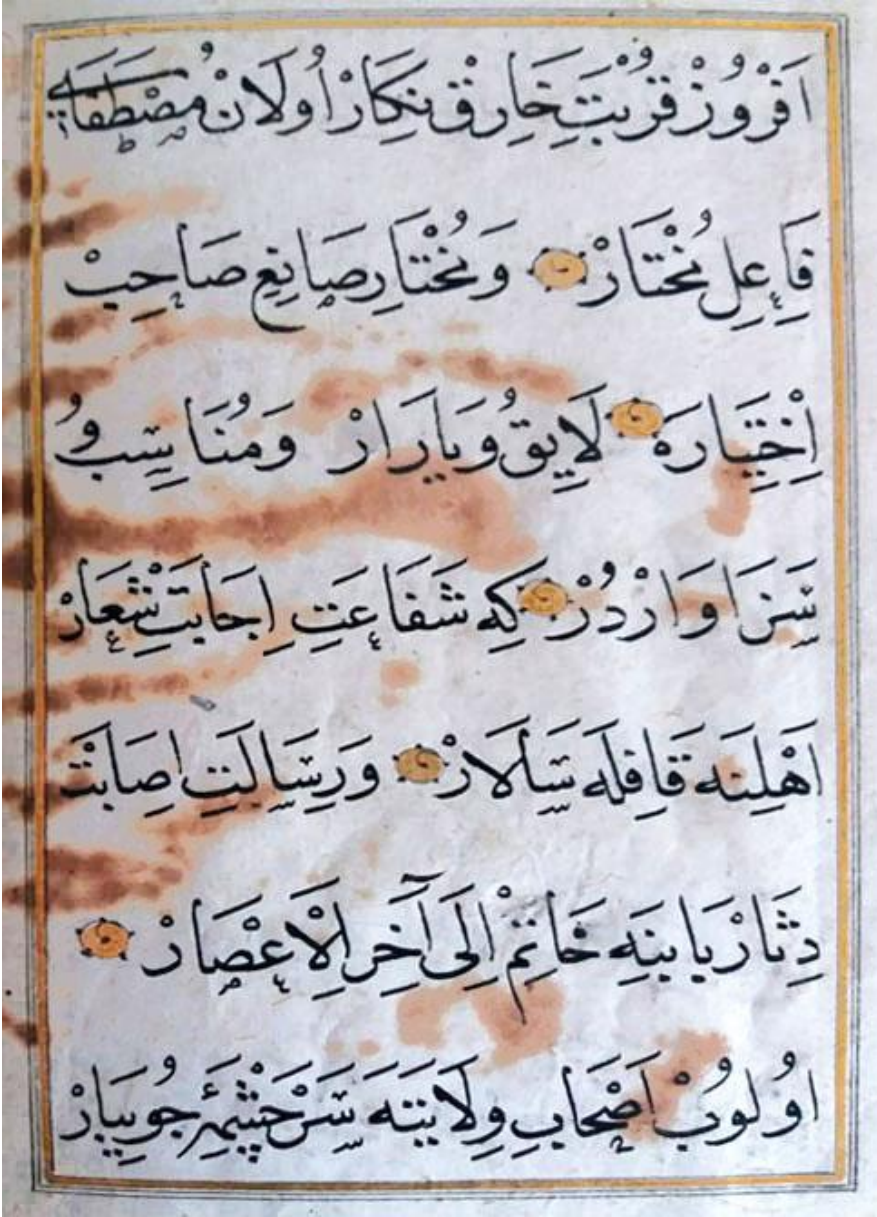 اَفْرُوزْ قُرْبَتِ خَارِقْ نِكَارْ اُولَانْ مُصْطَفَاىِ
فَاعِلِ مُخْتَارْ وَمُخْتَارِ صَانِعِ صَاحِبْ
اِخْتِيَارَه لَايِقُ وَيَارَارْ وَمُنَاسِبُ وُ
سَزَاوَارْدُرْ كِه شَفَاعَتِ اِجَابَتْ شِعَارْ
اَهْلِنَه قَافِلَه سَالَارْ وَرِسَالَتِ اِصَابَتْ
دِثَارْ يَابِينَه خَاتَمْ اِلَى آخِرِ الْاَعْصَارْ
اُولُوبْ اَصْحَابِ وِلَايَتَه سَرْچَشْمَۀِ جُويِبَارْ